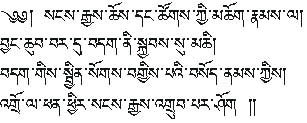 ༄༅། །སངས་རྒྱས་ཆོས་དང་ཚོགས་ཀྱི་མཆོག་རྣམས་ལ།
བྱང་ཆུབ་བར་དུ་བདག་ནི་སྐྱབས་སུ་མཆི།
བདག་གིས་སྦྱིན་སོགས་བགྱིས་པའི་བསོད་ནམས་ཀྱིས།
འགྲོ་ལ་ཕན་ཕྱིར་སངས་རྒྱས་འགྲུབ་པར་ཤོག །།